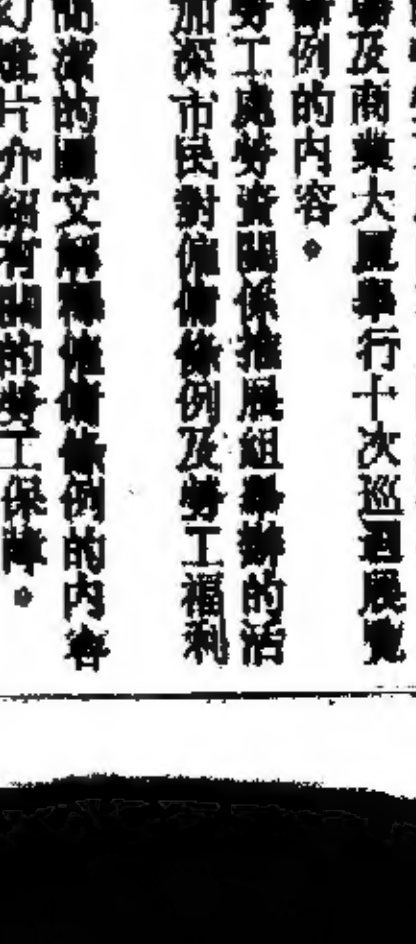 及商業大廈舉行十次巡迴展覽
條例的內容。
勞工處勞資關係推展組舉辦的活
加深市民對僱傭條例及勞工福利
簡潔的圖文解釋僱傭條例的內容
幻燈片介紹有關的勞工保障。